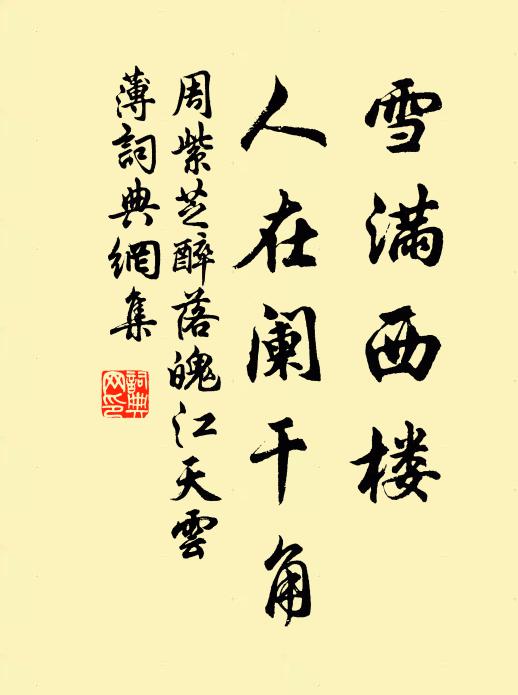 雪满西楼
人在阑干角
周紫芝醉落魄江天雲
薄詞典網集
詞典网印